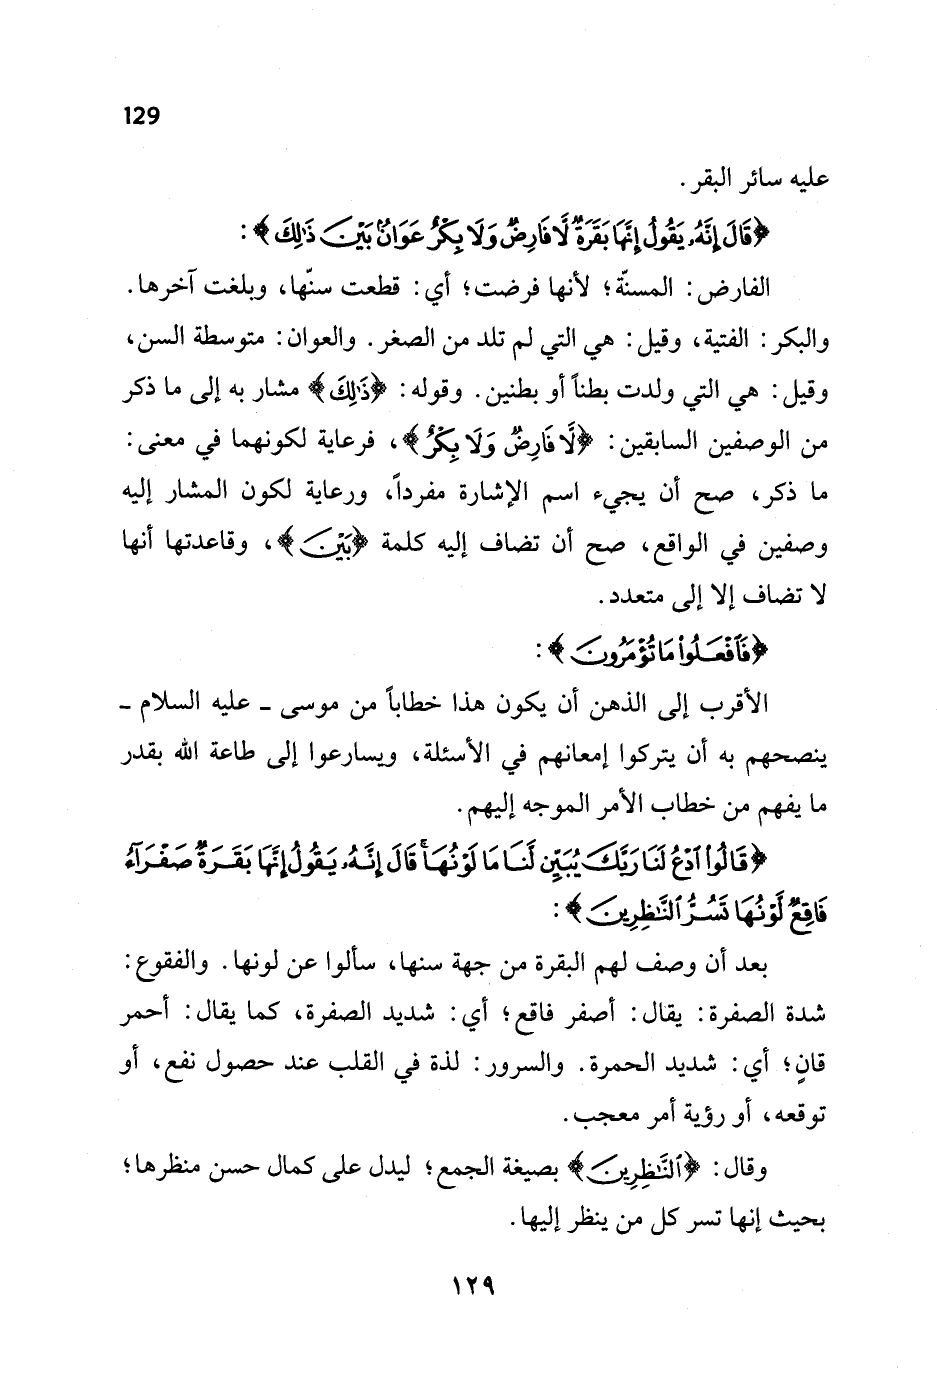 129
عليه سائر البقر.
﴿قَالَ إِنَّهُۥ يَقُولُ إِنَّهَا بَقَرَةٌ لَّا فَارِضٌ وَلَا بِكْرٌ عَوَانٌۢ بَيْنَ ذَٰلِكَ﴾:
الفارض: المسنّة؛ لأنها فرضت؛ أي: قطعت سنّها، وبلغت آخرها.
والبكر: الفتية، وقيل: هي التي لم تلد من الصغر. والعوان: متوسطة السن،
وقيل: هي التي ولدت بطناً أو بطنين. وقوله: ﴿ذَٰلِكَ﴾ مشار به إلى ما ذكر
من الوصفين السابقين: ﴿لَّا فَارِضٌ وَلَا بِكْرٌ﴾، فرعاية لكونهما في معنى:
ما ذكر، صح أن يجيء اسم الإشارة مفرداً، ورعاية لكون المشار إليه
وصفين في الواقع، صح أن تضاف إليه كلمة ﴿بَيْنَ﴾، وقاعدتها أنها
لا تضاف إلا إلى متعدد.
﴿فَٱفْعَلُوا۟ مَا تُؤْمَرُونَ﴾:
الأقرب إلى الذهن أن يكون هذا خطاباً من موسى - عليه السلام -
ينصحهم به أن يتركوا إمعانهم في الأسئلة، ويسارعوا إلى طاعة الله بقدر
ما يفهم من خطاب الأمر الموجه إليهم.
﴿قَالُوا۟ ٱدْعُ لَنَا رَبَّكَ يُبَيِّن لَّنَا مَا لَوْنُهَا ۚ قَالَ إِنَّهُۥ يَقُولُ إِنَّهَا بَقَرَةٌ صَفْرَآءُ
فَاقِعٌ لَّوْنُهَا تَسُرُّ ٱلنَّٰظِرِينَ﴾:
بعد أن وصف لهم البقرة من جهة سنها، سألوا عن لونها. والفقوع:
شدة الصفرة: يقال: أصفر فاقع؛ أي: شديد الصفرة، كما يقال: أحمر
قانٍ؛ أي: شديد الحمرة. والسرور: لذة في القلب عند حصول نفع، أو
توقعه، أو رؤية أمر معجب.
وقال: ﴿ٱلنَّٰظِرِينَ﴾ بصيغة الجمع؛ ليدل على كمال حسن منظرها؛
بحيث إنها تسر كل من ينظر إليها.
١٢٩